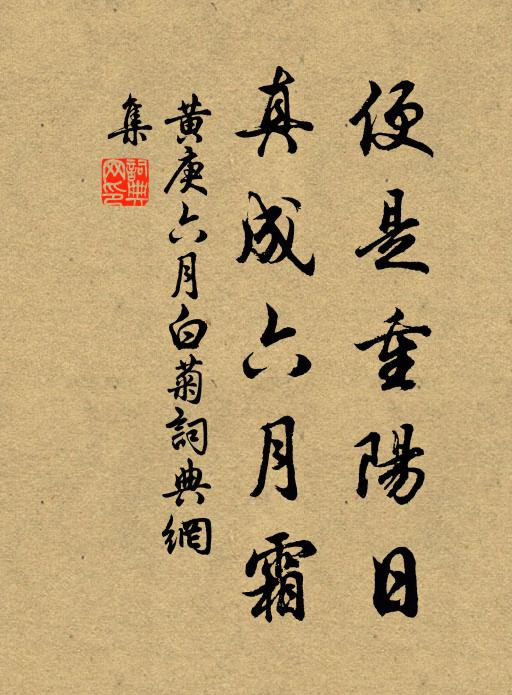 便是重陽日
真成六月霜
黄庚六月白菊詞典網
集
詞典网印